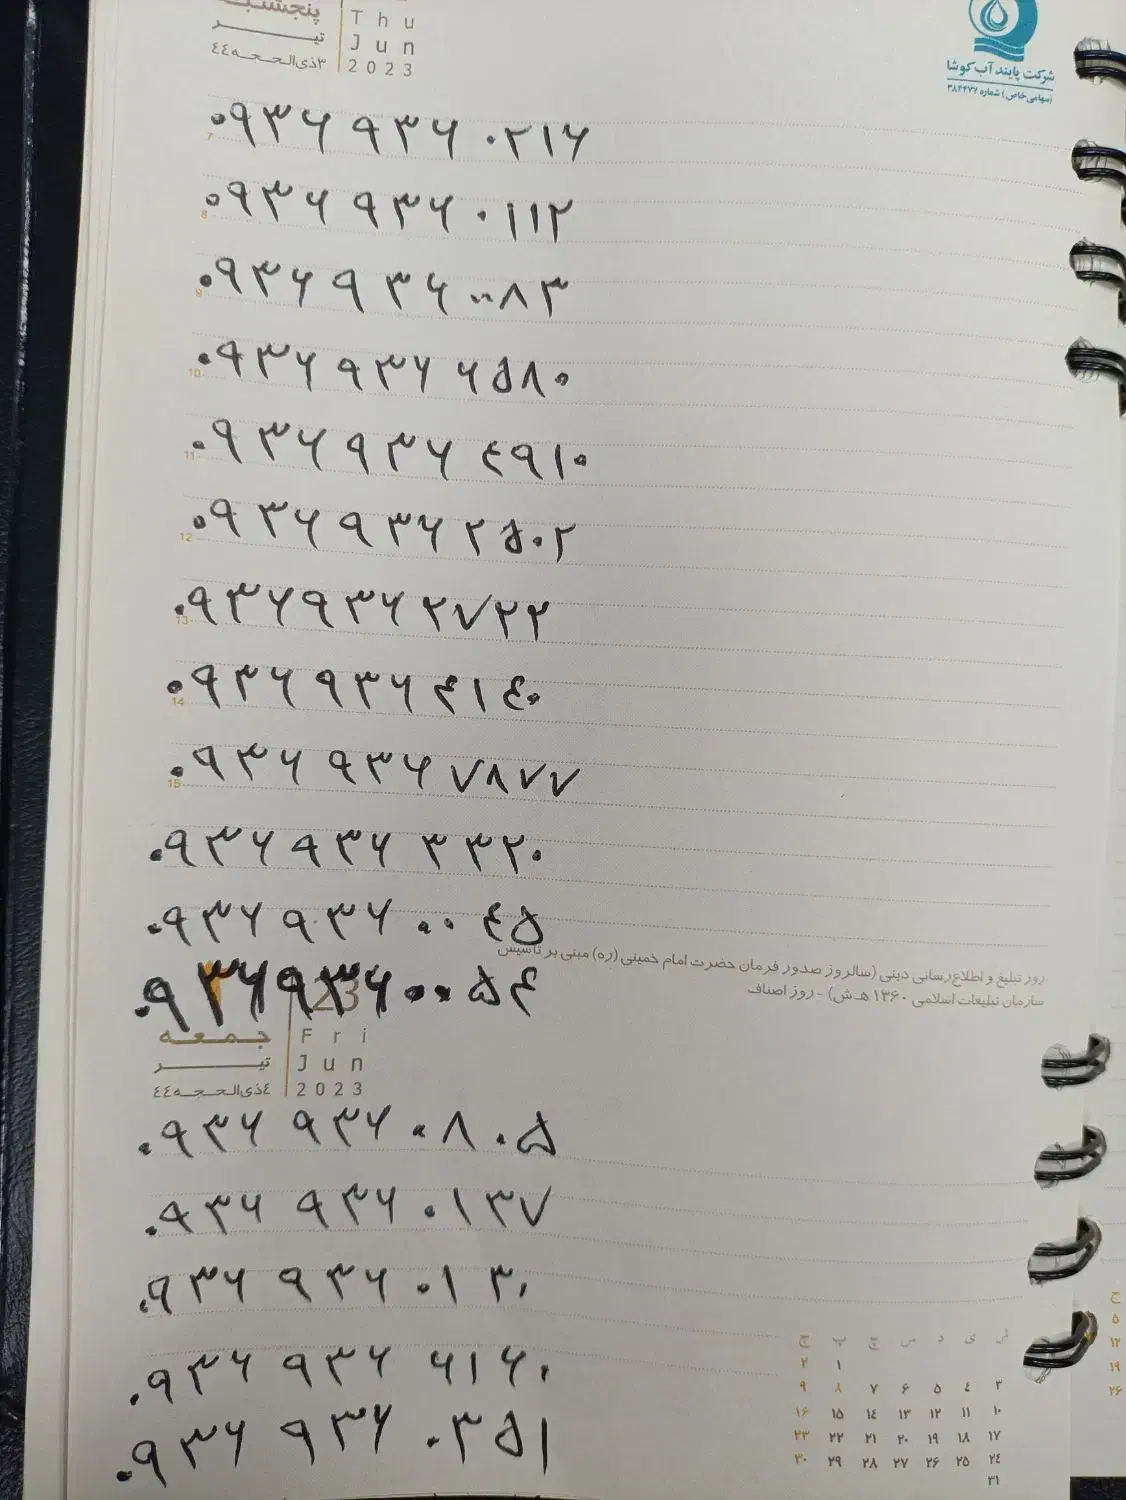 پنجشنبه
Thu
تیر
Jun
۳ذی‌الحجه٤٤
2023
شرکت پایند آب کوشا
(سهامی خاص) شماره ۳۸۴۴۷۶
7
۰۹۳۶ ۹۳۶ ۰۲۱۶
8
۰۹۳۶ ۹۳۶ ۰۱۱۲
9
۰۹۳۶ ۹۳۶ ۰۰۸۳
10
۰۹۳۶ ۹۳۶ ۶۵۸۰
11
۰۹۳۶ ۹۳۶ ٤۹۱۰
12
۰۹۳۶ ۹۳۶ ۲۵۰۲
13
۰۹۳۶ ۹۳۶ ۲۷۲۲
14
۰۹۳۶ ۹۳۶ ۴۱٤۰
15
۰۹۳۶ ۹۳۶ ۷۸۷۷
۰۹۳۶ ۹۳۶ ۳۳۲۰
۰۹۳۶ ۹۳۶ ۰۰٤۵
روز تبلیغ و اطلاع‌رسانی دینی (سالروز صدور فرمان حضرت امام خمینی (ره) مبنی بر تأسیس
سازمان تبلیغات اسلامی ۱۳۶۰ هـ ش) - روز اصناف
۰۹۳۶۹۳۶۰۰۵۴
23
جمعه
Fri
تیر
Jun
٤ذی‌الحجه٤٤
2023
۰۹۳۶ ۹۳۶ ۰۸۰۵
۰۹۳۶ ۹۳۶ ۰۱۳۷
۰۹۳۶ ۹۳۶ ۰۱۳۰
۰۹۳۶ ۹۳۶ ۶۱۶۰
۰۹۳۶ ۹۳۶ ۰۳۵۱
ش ی د س چ پ ج
۱ ۲
۳ ٤ ۵ ۶ ۷ ۸ ۹
۱۰ ۱۱ ۱۲ ۱۳ ۱٤ ۱۵ ۱۶
۱۷ ۱۸ ۱۹ ۲۰ ۲۱ ۲۲ ۲۳
۲٤ ۲۵ ۲۶ ۲۷ ۲۸ ۲۹ ۳۰
۳۱
ج
۵
۱۲
۱۹
۲۶